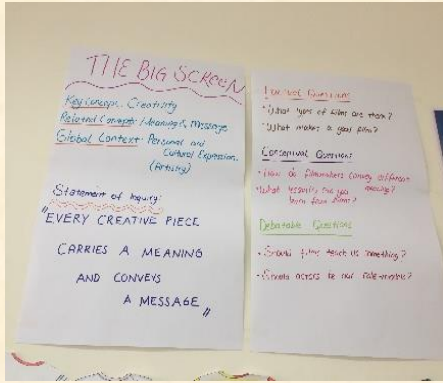 THE BIG SCREEN
Key concept: Creativity
Related Concepts: Meaning & Message
Global Context: Personal and
Cultural Expression
(Artistry)
Statement of Inquiry:
"EVERY CREATIVE PIECE
CARRIES A MEANING
AND CONVEYS
A MESSAGE"
Factual Questions
· What types of films are there?
· What makes a good film?
Conceptual Questions
· How do filmmakers convey
message?
· What lessons can you
learn from films?
Debatable Questions
· Should films teach us something?
· Should actors be our role-models?